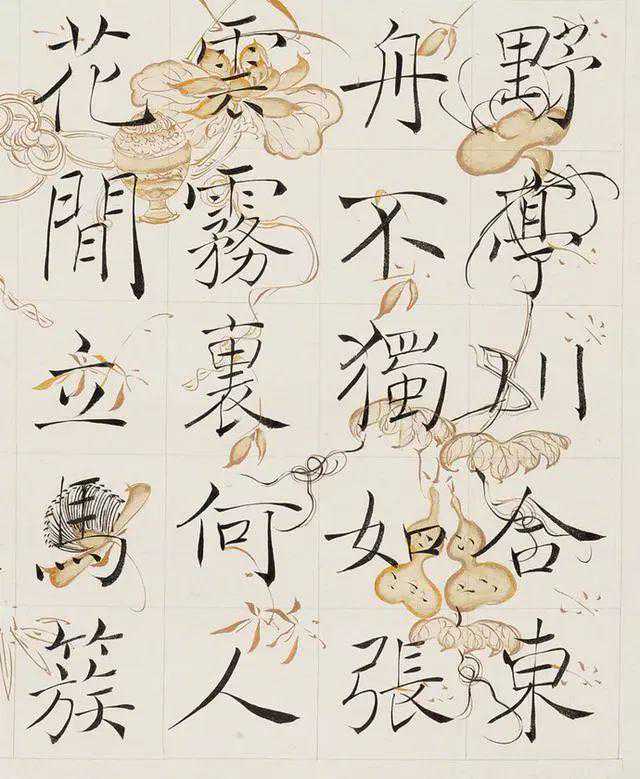 野川舍東
舟不獨如張
雲霧裏何人
花間立馬簇